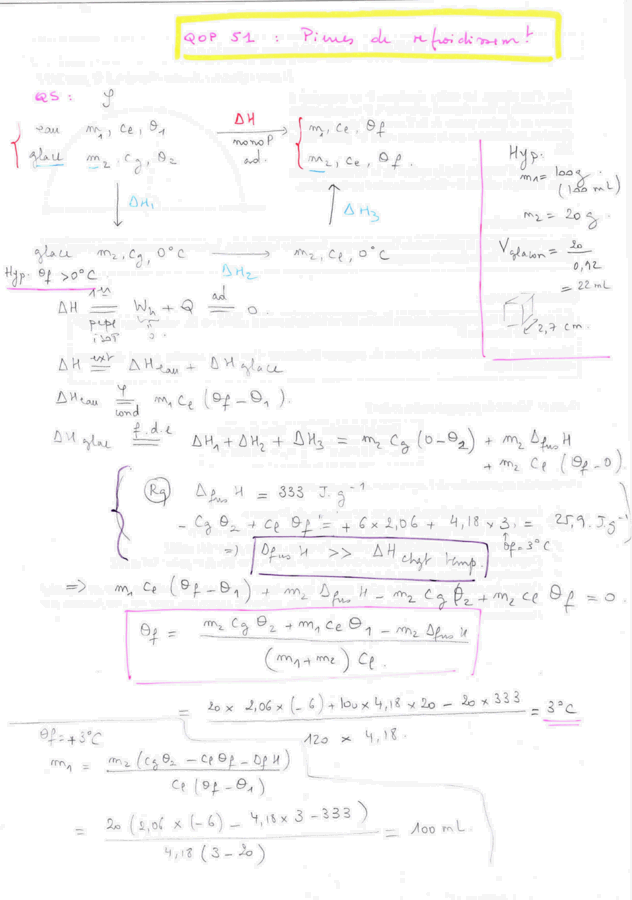 QOP 51 : Pierres de refroidissemt
Q5 : φ
eau m1, Ce, θ1 ΔH m1, Ce, θf
monoP
ad.
glace m2, Cg, θ2 m2, Ce, θf.
ΔH1 ΔH3
glace m2, Cg, 0°C m2, Cl, 0°C
ΔH2
Hyp: θf > 0°C
Hyp:
m1 = 100g
(100 mL)
m2 = 20 g.
Vglaçon = 20 / 0,92
= 22 mL
2,7 cm.
ΔH = Wu + Q = 0.
1er
ppe
isoP
0
ad
ΔH = ΔHeau + ΔH glace
ext
ΔHeau = m1 Cl (θf - θ1).
φ
cond
ΔH glac = ΔH1 + ΔH2 + ΔH3 = m2 Cg (0-θ2) + m2 ΔfusH
f.d.e
+ m2 Cl (θf - 0)
Rq ΔfusH = 333 J.g-1
- Cg θ2 + Cl θf = + 6 x 2,06 + 4,18 x 3 = 25,9. J.g-1
θf=3°C
=> ΔfusH >> ΔH chgt temp.
=> m1 Cl (θf - θ1) + m2 ΔfusH - m2 Cg θ2 + m2 Cl θf = 0.
θf = m2 Cg θ2 + m1 Ce θ1 - m2 ΔfusH / (m1+m2) Cl.
= 20 x 2,06 x (-6) + 100 x 4,18 x 20 - 20 x 333 / 120 x 4,18. = 3°C
θf = +3°C
m1 = m2 (Cg θ2 - Cl θf - ΔfH) / Cl (θf - θ1)
= 20 (2,06 x (-6) - 4,18 x 3 - 333) / 4,18 (3 - 20) = 100 mL.